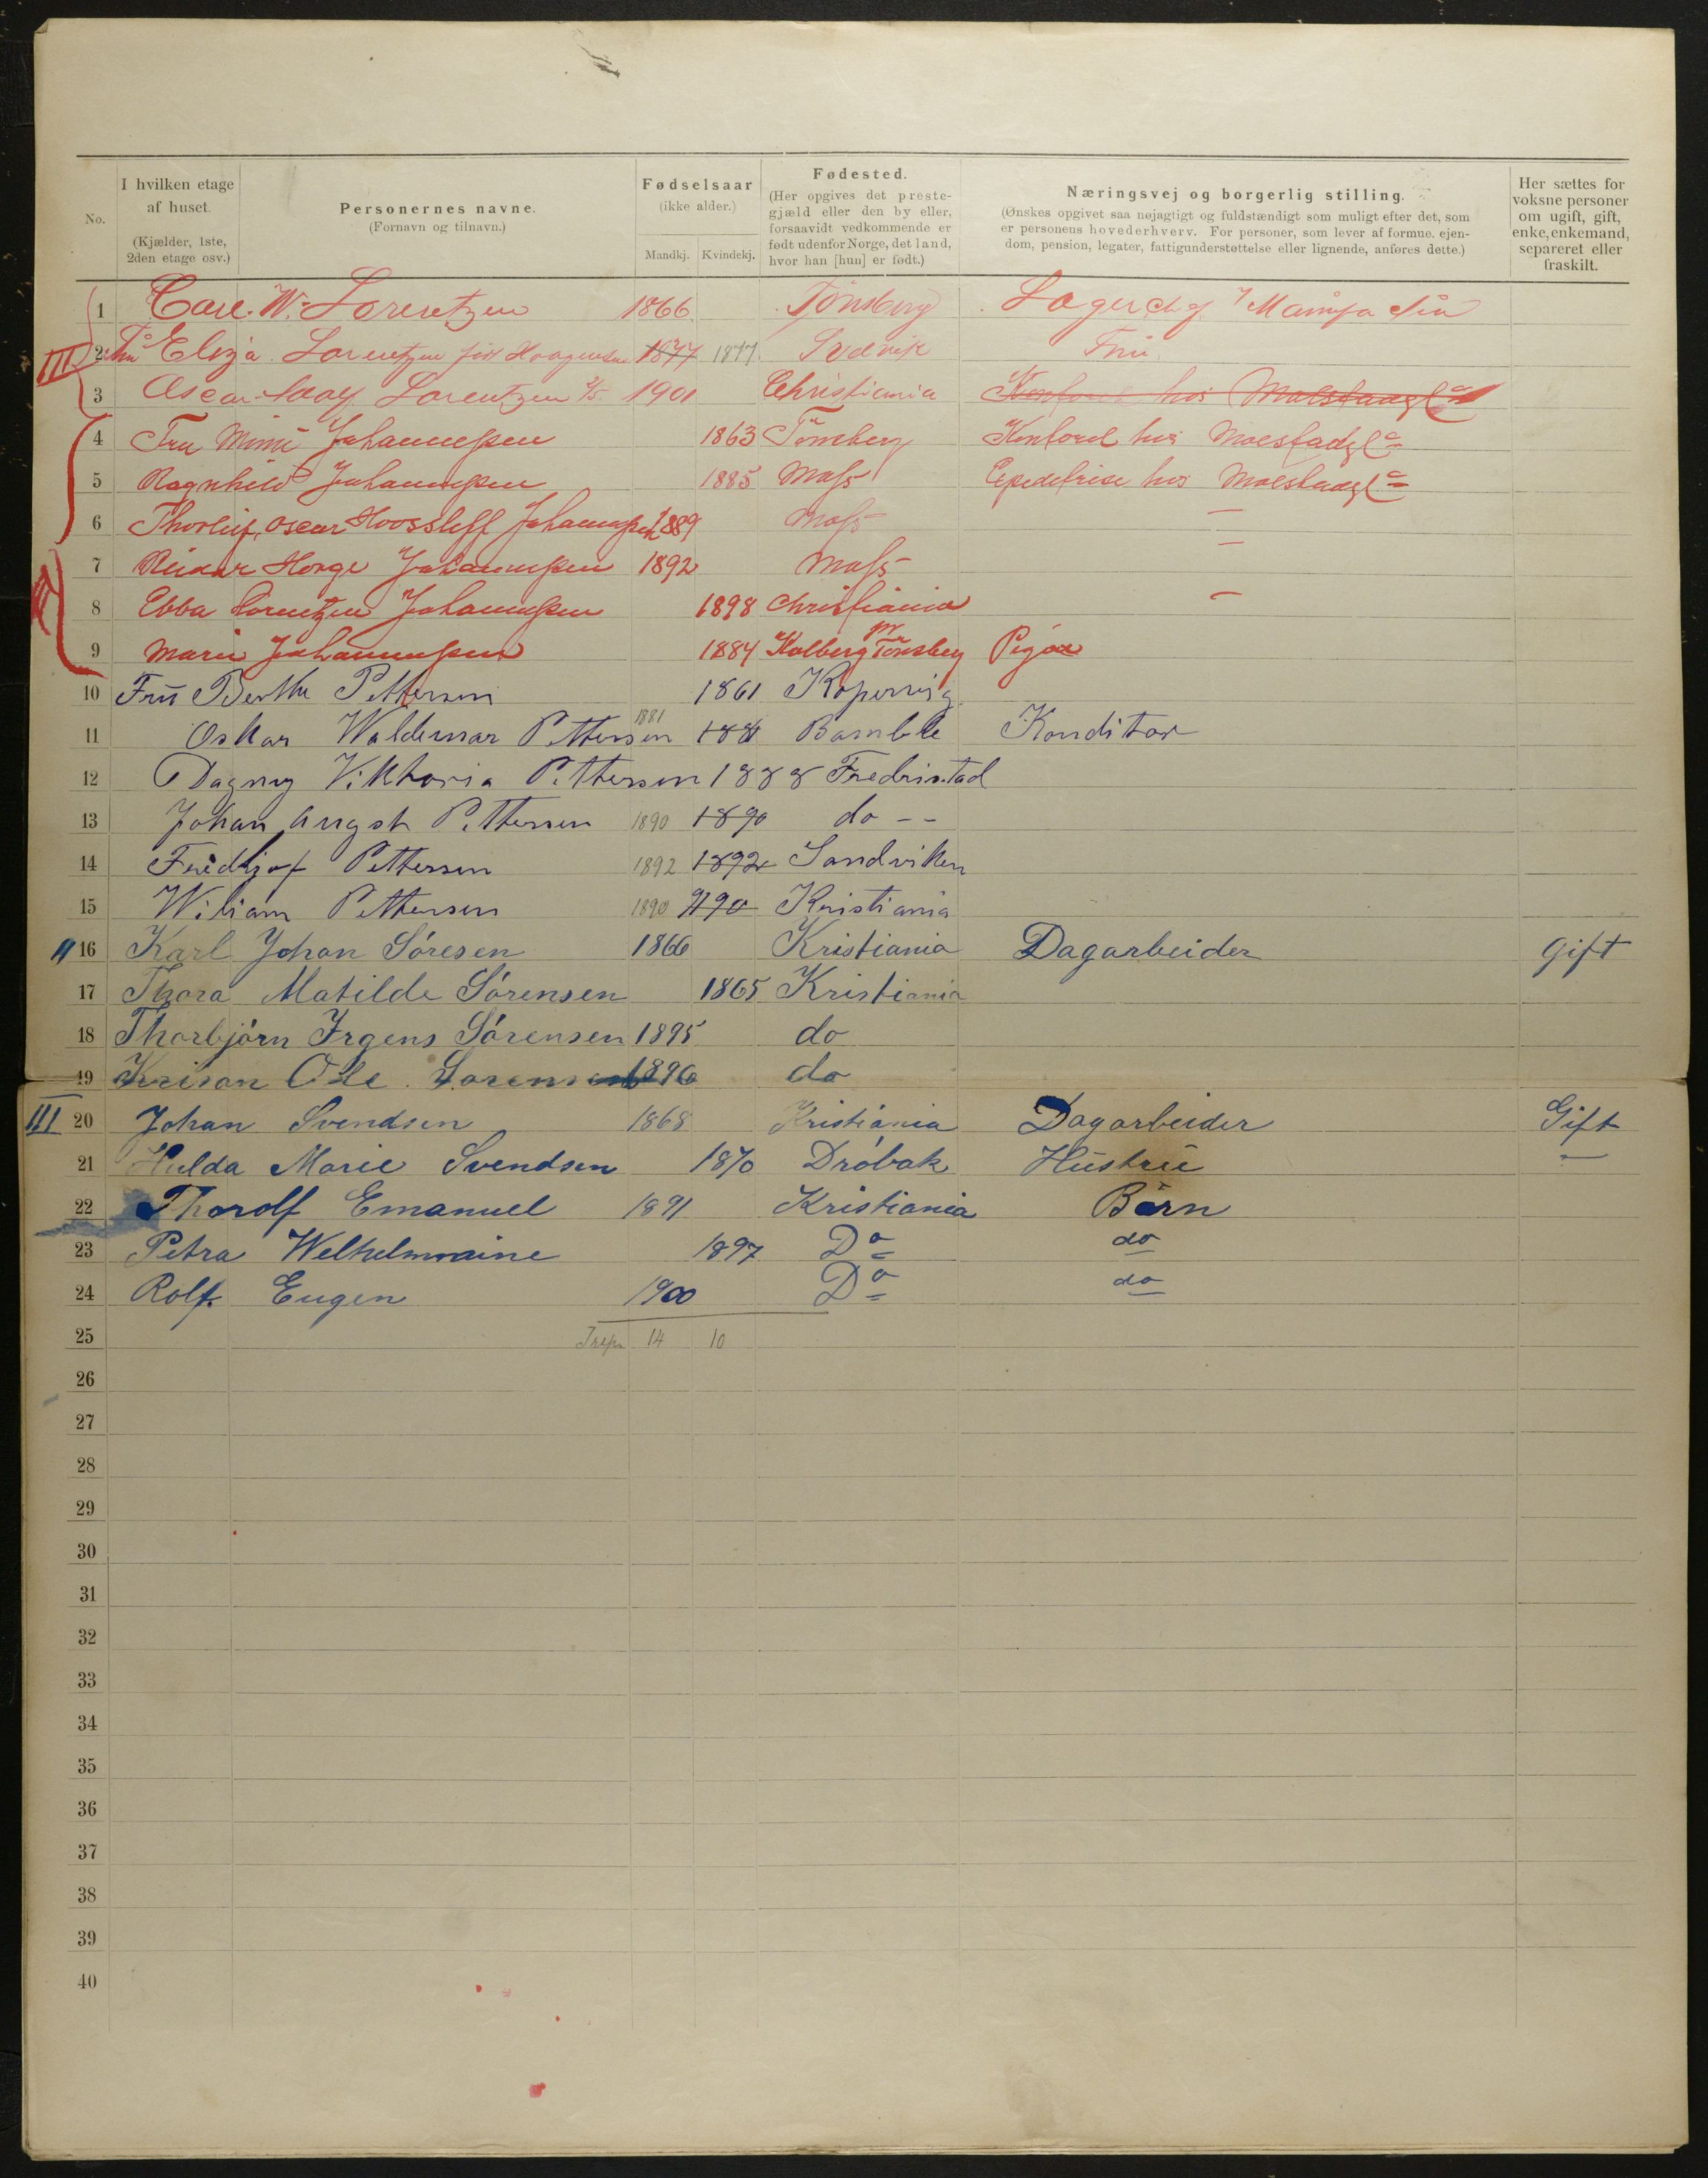 No.
I hvilken etage af huset. (Kjælder, 1ste, 2den etage osv.)
Personernes navne. (Fornavn og tilnavn.)
Fødselsaar (ikke alder.) Mandkj. Kvindekj.
Fødested. (Her opgives det prestegjæld eller den by eller, forsaavidt vedkommende er født udenfor Norge, det land, hvor han [hun] er født.)
Næringsvej og borgerlig stilling. (Ønskes opgivet saa nøjagtigt og fuldstændigt som muligt efter det, som er personens hovederhverv. For personer, som lever af formue, ejendom, pension, legater, fattigunderstøttelse eller lignende, anføres dette.)
Her sættes for voksne personer om ugift, gift, enke, enkemand, separeret eller fraskilt.
1 Carl. W. Lorentzen 1866 Tönsberg Lagerchef
III 2 Lorentzen 1877 1877 Fru
3 Oscar Lorentzen 1901 Christiania hos
4 Fru Mimi Johannessen 1863 Tönsberg hos Molstad & Co
5 Ragnhild Johannessen 1885 Moss hos Molstad & Co
6 Thorleif Oscar Johannessen 1889 Moss —
7 Reidar Johannessen 1892 Moss —
8 Ebba Lorentzen Johannessen 1898 Christiania —
9 Marie Johannessen 1884 pr Tönsberg Pige
10 Fru Berthe Pettersen 1861 Kopervig
11 Oskar Waldemar Pettersen 1881 1881 Bamble Konditor
12 Dagny Viktoria Pettersen 1888 Fredristad
13 Johan Augst Pettersen 1890 1890 do --
14 Fredhjof Pettersen 1892 1892 Sandviken
15 Wiliam Pettersen 1890 Kristiania
II 16 Karl Johan Söresen 1866 Kristiania Dagarbeider Gift
17 Thora Matilde Sörensen 1865 Kristiania
18 Thorbjörn Irgens Sörensen 1895 do
19 Ole Sorensen 1896 do
III 20 Johan Svendsen 1868 Kristiania Dagarbeider Gift
21 Hulda Marie Svendsen 1870 Dröbak Hustru —
22 Thorolf Emanuel 1891 Kristiania Børn
23 Petra Welhelmmine 1897 Do do
24 Rolf Eugen 1900 Do do
25 14 10
26
27
28
29
30
31
32
33
34
35
36
37
38
39
40